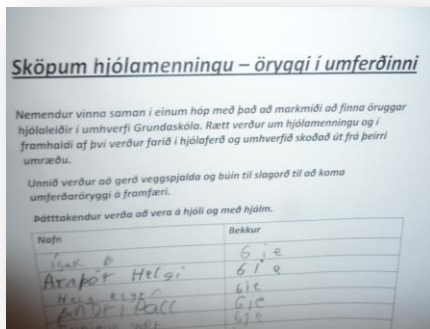 Sköpum hjólamenningu – öryggi í umferðinni
Nemendur vinna saman í einum hóp með það að markmiði að finna öruggar
hjólaleiðir í umhverfi Grundaskóla. Rætt verður um hjólamenningu og í
framhaldi af því verður farið í hjólaferð og umhverfið skoðað út frá þeirri
umræðu.
Unnið verður að gerð veggspjalda og búin til slagorð til að koma
umferðaröryggi á framfæri.
Þátttakendur verða að vera á hjóli og með hjálm.
Nafn Bekkur
Ísak
Arnþór Helgi
Andri Páll